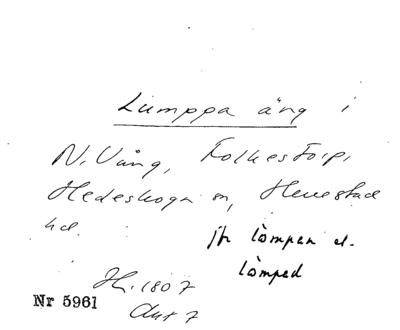 Lumppa äng i
N. Vång, Folkestorp,
Hedeskoga sn, Herrestad
hd.
jfr lömpen el.
lömped
H. 1807
Akt 7
Nr 5961